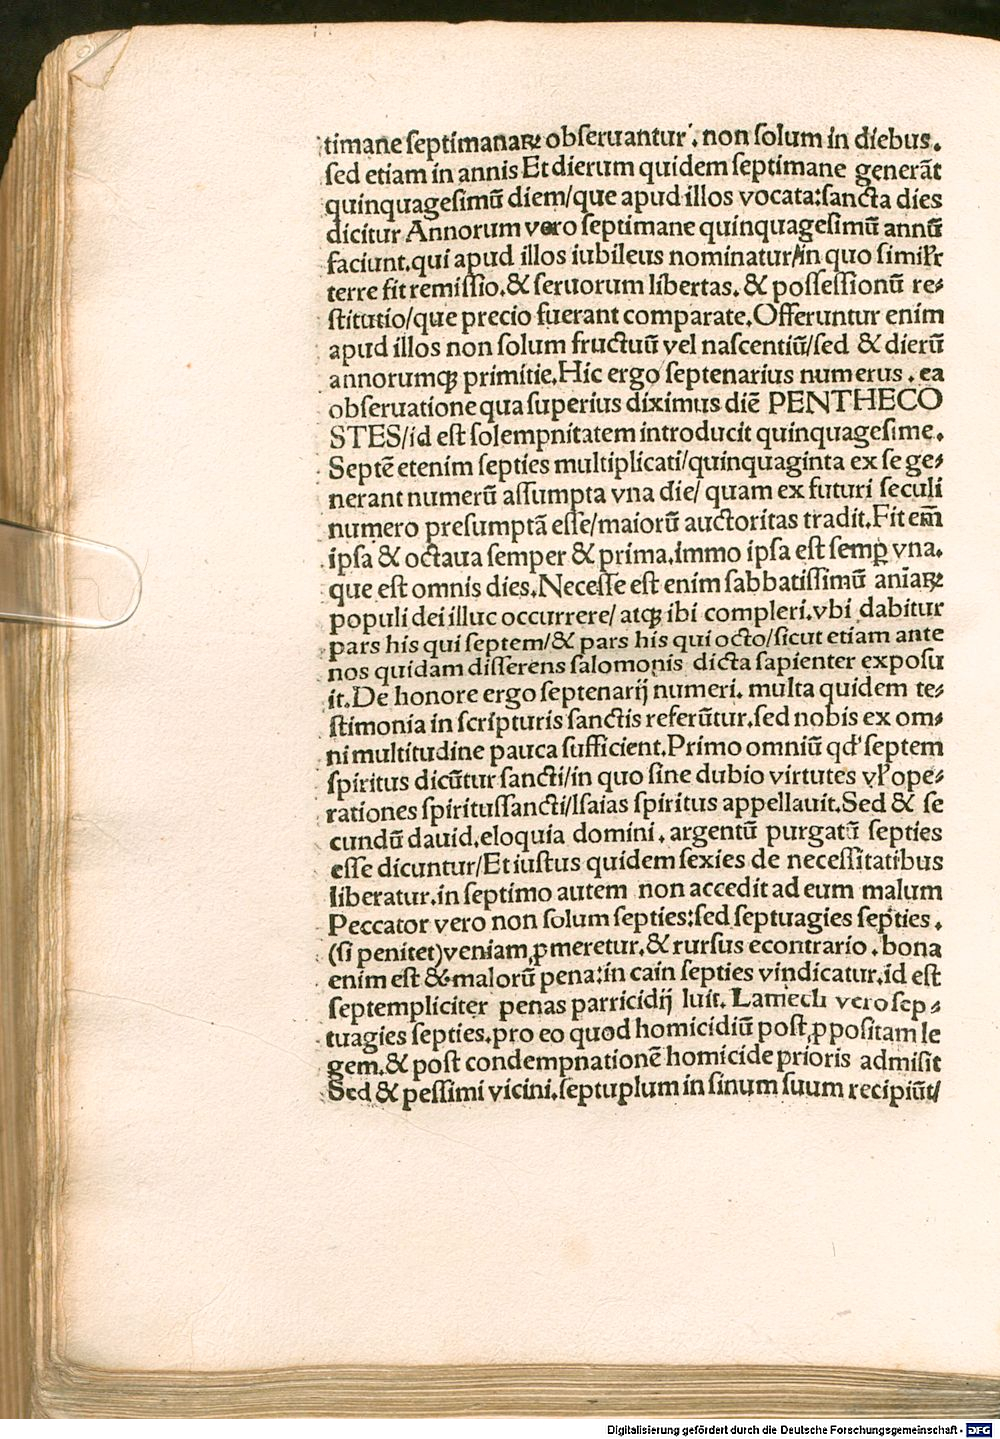 timane septimanaꝝ obseruantur . non solum in diebus.
sed etiam in annis Et dierum quidem septimane generāt
quinquagesimū diem/que apud illos vocata:sancta dies
dicitur Annorum vero septimane quinquagesimū annū
faciunt.qui apud illos iubileus nominatur/in quo simil'r
terre fit remissio.& seruorum libertas. & possessionū re⸗
stitutio/que precio fuerant comparate.Offeruntur enim
apud illos non solum fructuū vel nascentiū/sed & dierū
annorumqȝ primitie.Hic ergo septenarius numerus . ea
obseruatione qua superius diximus diē PENTHECO
STES/id est solempnitatem introducit quinquagesime.
Septē etenim septies multiplicati/quinquaginta ex se ge⸗
nerant numerū assumpta vna die/ quam ex futuri seculi
numero presumptā esse/maiorū auctoritas tradit.Fit em̄
ipsa & octaua semper & prima.immo ipsa est semꝑ vna.
que est omnis dies.Necesse est enim sabbatissimū aniaꝝ
populi dei illuc occurrere/ atqȝ ibi compleri.vbi dabitur
pars his qui septem/& pars his qui octo/sicut etiam ante
nos quidam disserens salomonis dicta sapienter exposu
it.De honore ergo septenarij numeri. multa quidem te⸗
stimonia in scripturis sanctis referūtur.sed nobis ex om⸗
ni multitudine pauca sufficient.Primo omniū qd' septem
spiritus dicūtur sancti/in quo sine dubio virtutes vl' ope⸗
rationes spiritussancti/Isaias spiritus appellauit.Sed & se
cundū dauid.eloquia domini . argentū purgatū septies
esse dicuntur/Et iustus quidem sexies de necessitatibus
liberatur.in septimo autem non accedit ad eum malum
Peccator vero non solum septies:sed septuagies septies .
(si penitet)veniam ꝓmeretur.& rursus econtrario . bona
enim est & malorū pena:in cain septies vindicatur.id est
septempliciter penas parricidij luit. Lamech vero sep⸗
tuagies septies.pro eo quod homicidiū post ꝓpositam le
gem.& post condempnationē homicide prioris admisit
Sed & pessimi vicini.septuplum in sinum suum recipiūt/
Digitalisierung gefördert durch die Deutsche Forschungsgemeinschaft - DFG